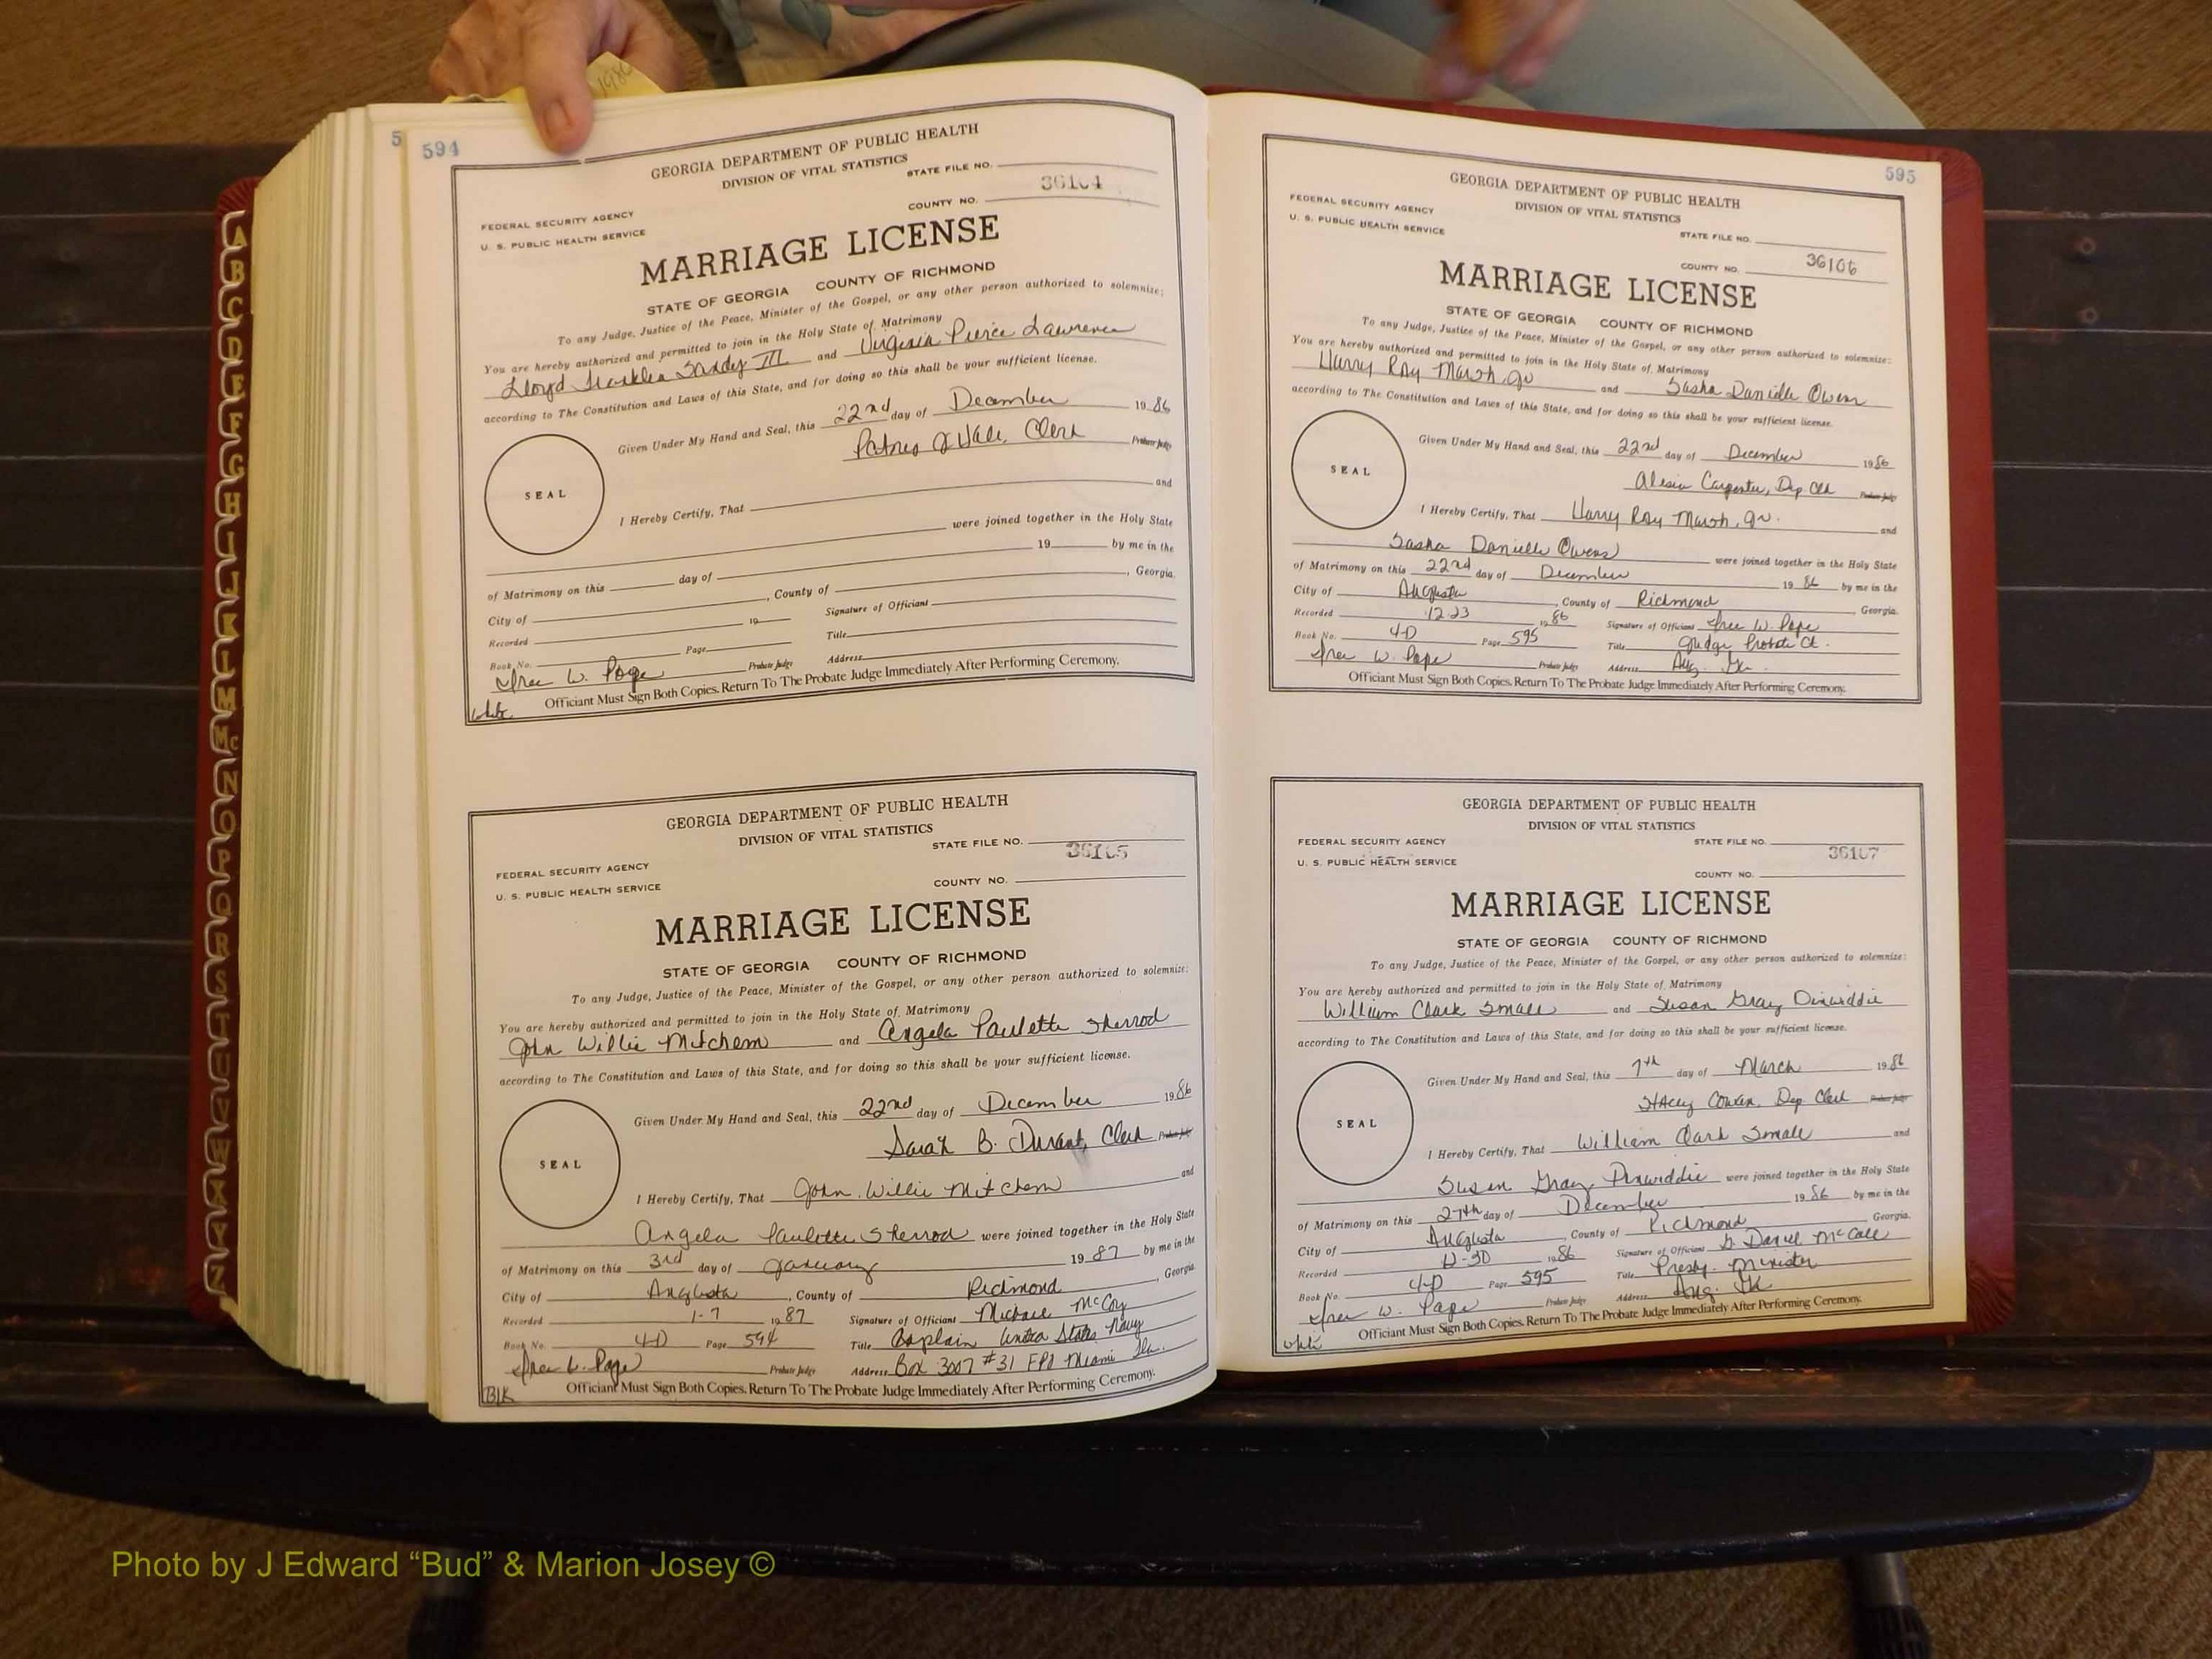 1986
5
594
GEORGIA DEPARTMENT OF PUBLIC HEALTH
DIVISION OF VITAL STATISTICS
STATE FILE NO.
36104
FEDERAL SECURITY AGENCY
COUNTY NO.
U. S. PUBLIC HEALTH SERVICE
MARRIAGE LICENSE
STATE OF GEORGIA COUNTY OF RICHMOND
To any Judge, Justice of the Peace, Minister of the Gospel, or any other person authorized to solemnize:
You are hereby authorized and permitted to join in the Holy State of Matrimony
Lloyd Franklin III and Virginia Pierce Lawrence
according to The Constitution and Laws of this State, and for doing so this shall be your sufficient license.
Given Under My Hand and Seal, this 22nd day of December 1986
Clerk Probate Judge
SEAL
I Hereby Certify, That and
were joined together in the Holy State
of Matrimony on this day of 19 by me in the
City of , County of , Georgia.
Recorded 19 Signature of Officiant
Book No. Page Title
W. Pope Probate Judge Address
white Officiant Must Sign Both Copies. Return To The Probate Judge Immediately After Performing Ceremony.
GEORGIA DEPARTMENT OF PUBLIC HEALTH
DIVISION OF VITAL STATISTICS
STATE FILE NO.
36105
FEDERAL SECURITY AGENCY
COUNTY NO.
U. S. PUBLIC HEALTH SERVICE
MARRIAGE LICENSE
STATE OF GEORGIA COUNTY OF RICHMOND
To any Judge, Justice of the Peace, Minister of the Gospel, or any other person authorized to solemnize:
You are hereby authorized and permitted to join in the Holy State of Matrimony
John Willie Mitchem and Angela Paulette Sherrod
according to The Constitution and Laws of this State, and for doing so this shall be your sufficient license.
Given Under My Hand and Seal, this 22nd day of December 1986
Sarah B. Durant, Clerk Probate Judge
SEAL
I Hereby Certify, That John Willie Mitchem and
Angela Paulette Sherrod were joined together in the Holy State
of Matrimony on this 3rd day of January 1987 by me in the
City of Augusta , County of Richmond , Georgia.
Recorded 1-7 1987 Signature of Officiant Michael McCoy
Book No. 4-D Page 594 Title Chaplain United States Navy
W. Pope Probate Judge Address Box 3007 #31 Miami Fla.
Blk Officiant Must Sign Both Copies. Return To The Probate Judge Immediately After Performing Ceremony.
595
GEORGIA DEPARTMENT OF PUBLIC HEALTH
DIVISION OF VITAL STATISTICS
FEDERAL SECURITY AGENCY
U. S. PUBLIC HEALTH SERVICE
STATE FILE NO.
36106
COUNTY NO.
MARRIAGE LICENSE
STATE OF GEORGIA COUNTY OF RICHMOND
To any Judge, Justice of the Peace, Minister of the Gospel, or any other person authorized to solemnize:
You are hereby authorized and permitted to join in the Holy State of Matrimony
Harry Ray Marsh, Jr and Sasha Danielle Owens
according to The Constitution and Laws of this State, and for doing so this shall be your sufficient license.
Given Under My Hand and Seal, this 22nd day of December 1986
Alesia Carpenter, Dep Clk Probate Judge
SEAL
I Hereby Certify, That Harry Ray Marsh, Jr. and
Sasha Danielle Owens were joined together in the Holy State
of Matrimony on this 22nd day of December 1986 by me in the
City of Augusta , County of Richmond , Georgia.
Recorded 12-23 1986 Signature of Officiant W. Pope
Book No. 4-D Page 595 Title Judge Probate Ct.
W. Pope Probate Judge Address Aug. Ga.
Officiant Must Sign Both Copies. Return To The Probate Judge Immediately After Performing Ceremony.
GEORGIA DEPARTMENT OF PUBLIC HEALTH
DIVISION OF VITAL STATISTICS
FEDERAL SECURITY AGENCY
STATE FILE NO.
36107
U. S. PUBLIC HEALTH SERVICE
COUNTY NO.
MARRIAGE LICENSE
STATE OF GEORGIA COUNTY OF RICHMOND
To any Judge, Justice of the Peace, Minister of the Gospel, or any other person authorized to solemnize:
You are hereby authorized and permitted to join in the Holy State of Matrimony
William Clark Small and Susan Gray Dinwiddie
according to The Constitution and Laws of this State, and for doing so this shall be your sufficient license.
Given Under My Hand and Seal, this 7th day of March 1986
Stacey Cowan, Dep. Clerk Probate Judge
SEAL
I Hereby Certify, That William Clark Small and
Susan Gray Dinwiddie were joined together in the Holy State
of Matrimony on this 27th day of December 1986 by me in the
City of Augusta , County of Richmond , Georgia.
Recorded 12-30 1986 Signature of Officiant G. Daniel McCall
Book No. 4-D Page 595 Title Presby. Minister
W. Pope Probate Judge Address Aug. Ga
white Officiant Must Sign Both Copies. Return To The Probate Judge Immediately After Performing Ceremony.
A
B
C
D
E
F
G
H
I
J
K
L
M
Mc
N
O
P
Q
R
S
T
U
V
W
X
Y
Z
Photo by J Edward “Bud” & Marion Josey ©